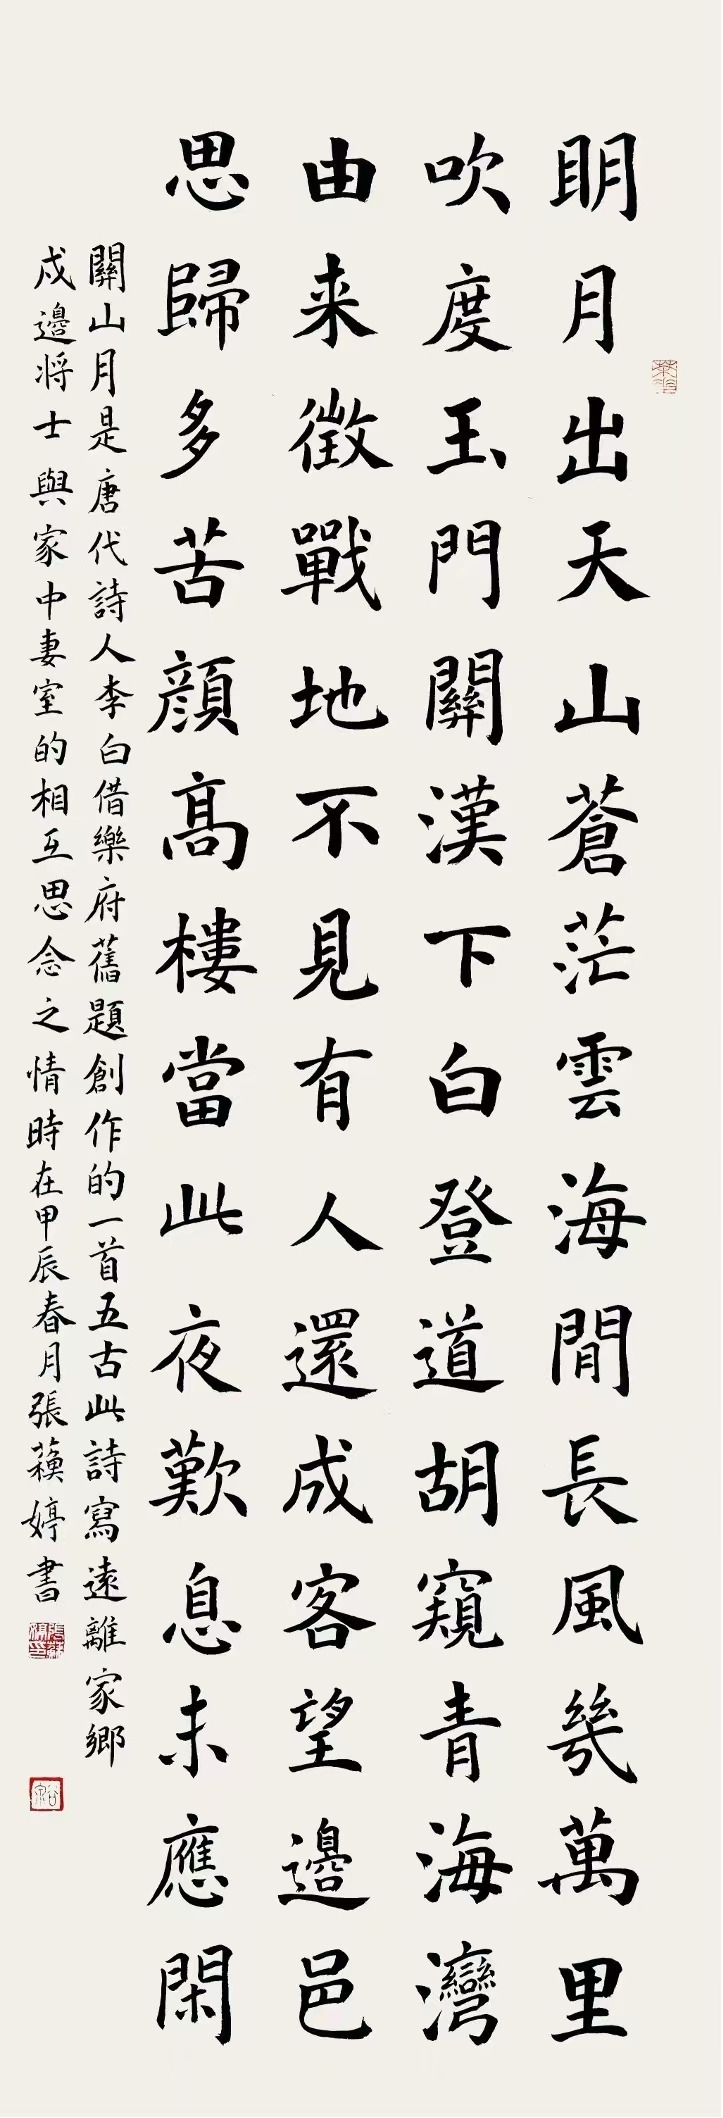 眀月出天山蒼茫雲海閒長風幾萬里
吹度玉門關漢下白登道胡窺青海灣
由来徵戰地不見有人還成客望邊邑
思歸多苦顔髙樓當此夜歎息未應閑
關山月是唐代詩人李白借樂府舊題創作的一首五古此詩寫遠離家鄉
戍邊将士與家中妻室的相互思念之情時在甲辰春月張蘓婷書